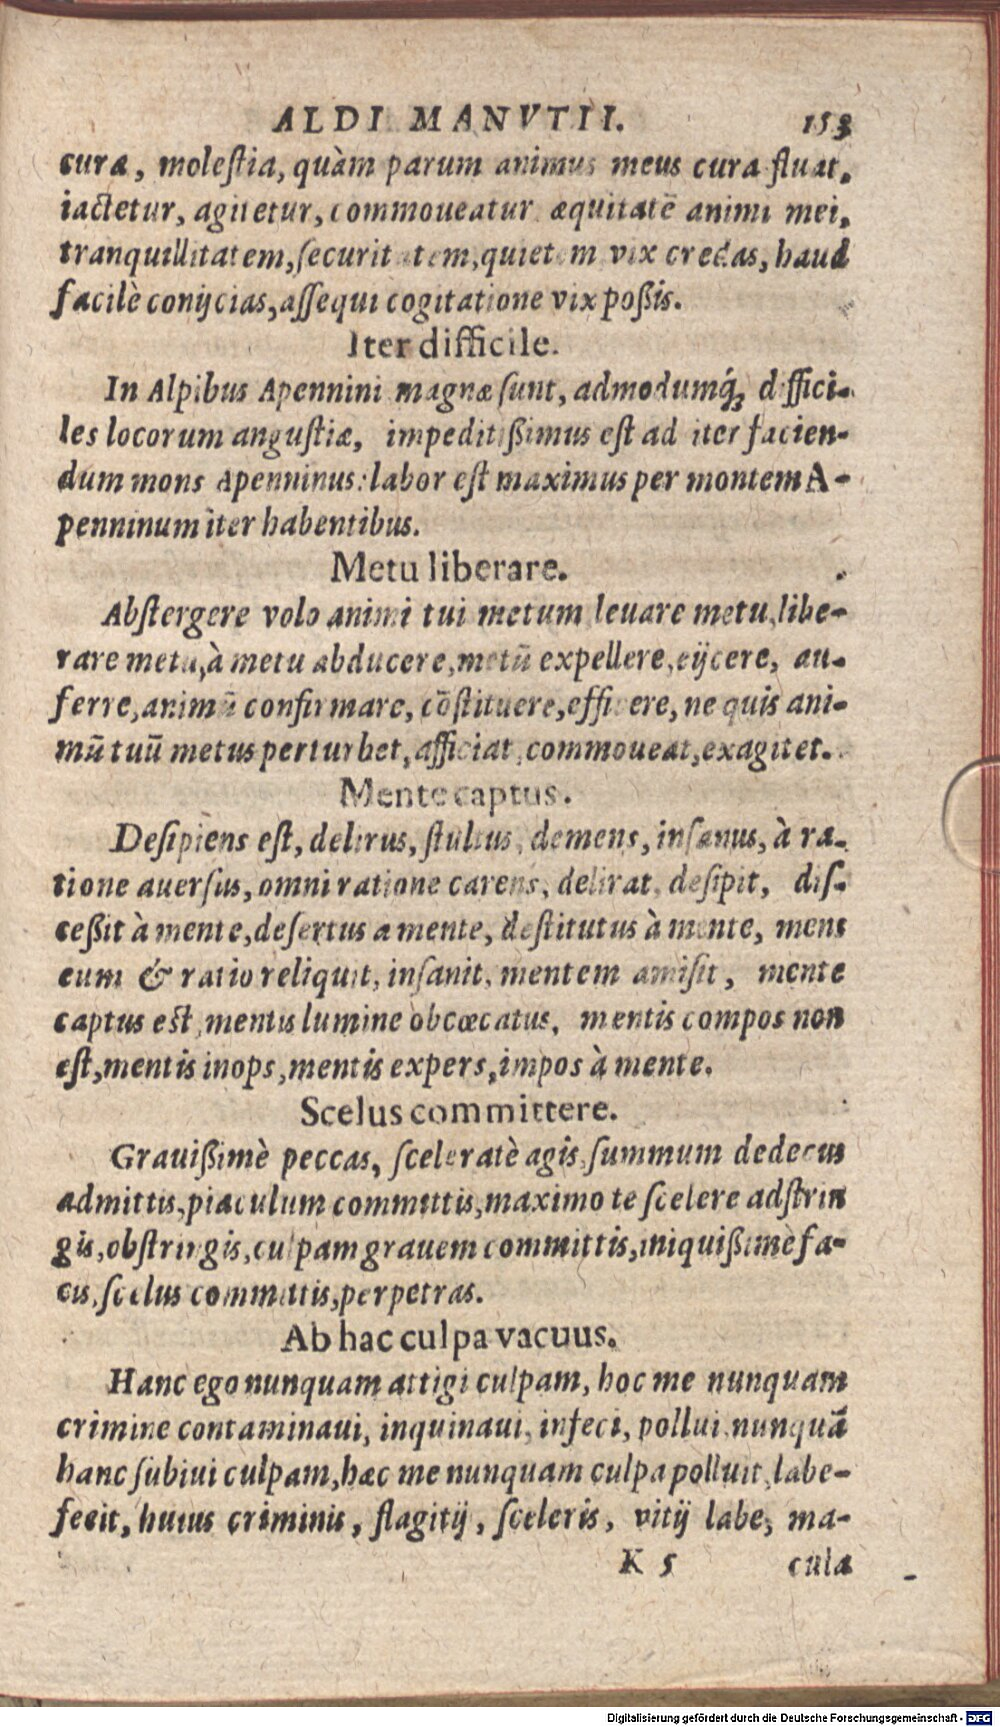 ALDI MANVTII. 153
curæ, molestia, quàm parum animus meus cura fluat,
iactetur, agitetur, commoueatur æquitatē animi mei,
tranquillitatem, securitatem, quietem vix credas, haud
facilè conijcias, assequi cogitatione vix poßis.
Iter difficile.
In Alpibus Apennini magnæ sunt, admodumq́; diffici-
les locorum angustiæ, impeditißimus est ad iter facien-
dum mons Apenninus: labor est maximus per montem A-
penninum iter habentibus.
Metu liberare.
Abstergere volo animi tui metum, leuare metu, libe-
rare metu, à metu abducere, metū expellere, eijcere, au-
ferre, animū confirmare, cōstituere, efficere, ne quis ani-
mū tuū metus perturbet, afficiat, commoueat, exagitet.
Mente captus.
Desipiens est, delirus, stultus, demens, insanus, à ra-
tione auersus, omni ratione carens, delirat, desipit, dis-
ceßit à mente, desertus a mente, destitutus à mente, mens
eum & ratio reliquit, insanit, mentem amisit, mente
captus est, mentis lumine obcœcatus, mentis compos non
est, mentis inops, mentis expers, impos à mente.
Scelus committere.
Grauißimè peccas, sceleratè agis, summum dedecus
admittis, piaculum committis, maximo te scelere adstrin
gis, obstringis, culpam grauem committis, iniquißimè fa-
cis, scelus committis, perpetras.
Ab hac culpa vacuus.
Hanc ego nunquam attigi culpam, hoc me nunquam
crimine contaminaui, inquinaui, infeci, pollui, nunquā
hanc subiui culpam, hæc me nunquam culpa polluit, labe-
fecit, huius criminis, flagitij, sceleris, vitij labe, ma-
K 5 cula
Digitalisierung gefördert durch die Deutsche Forschungsgemeinschaft - DFG